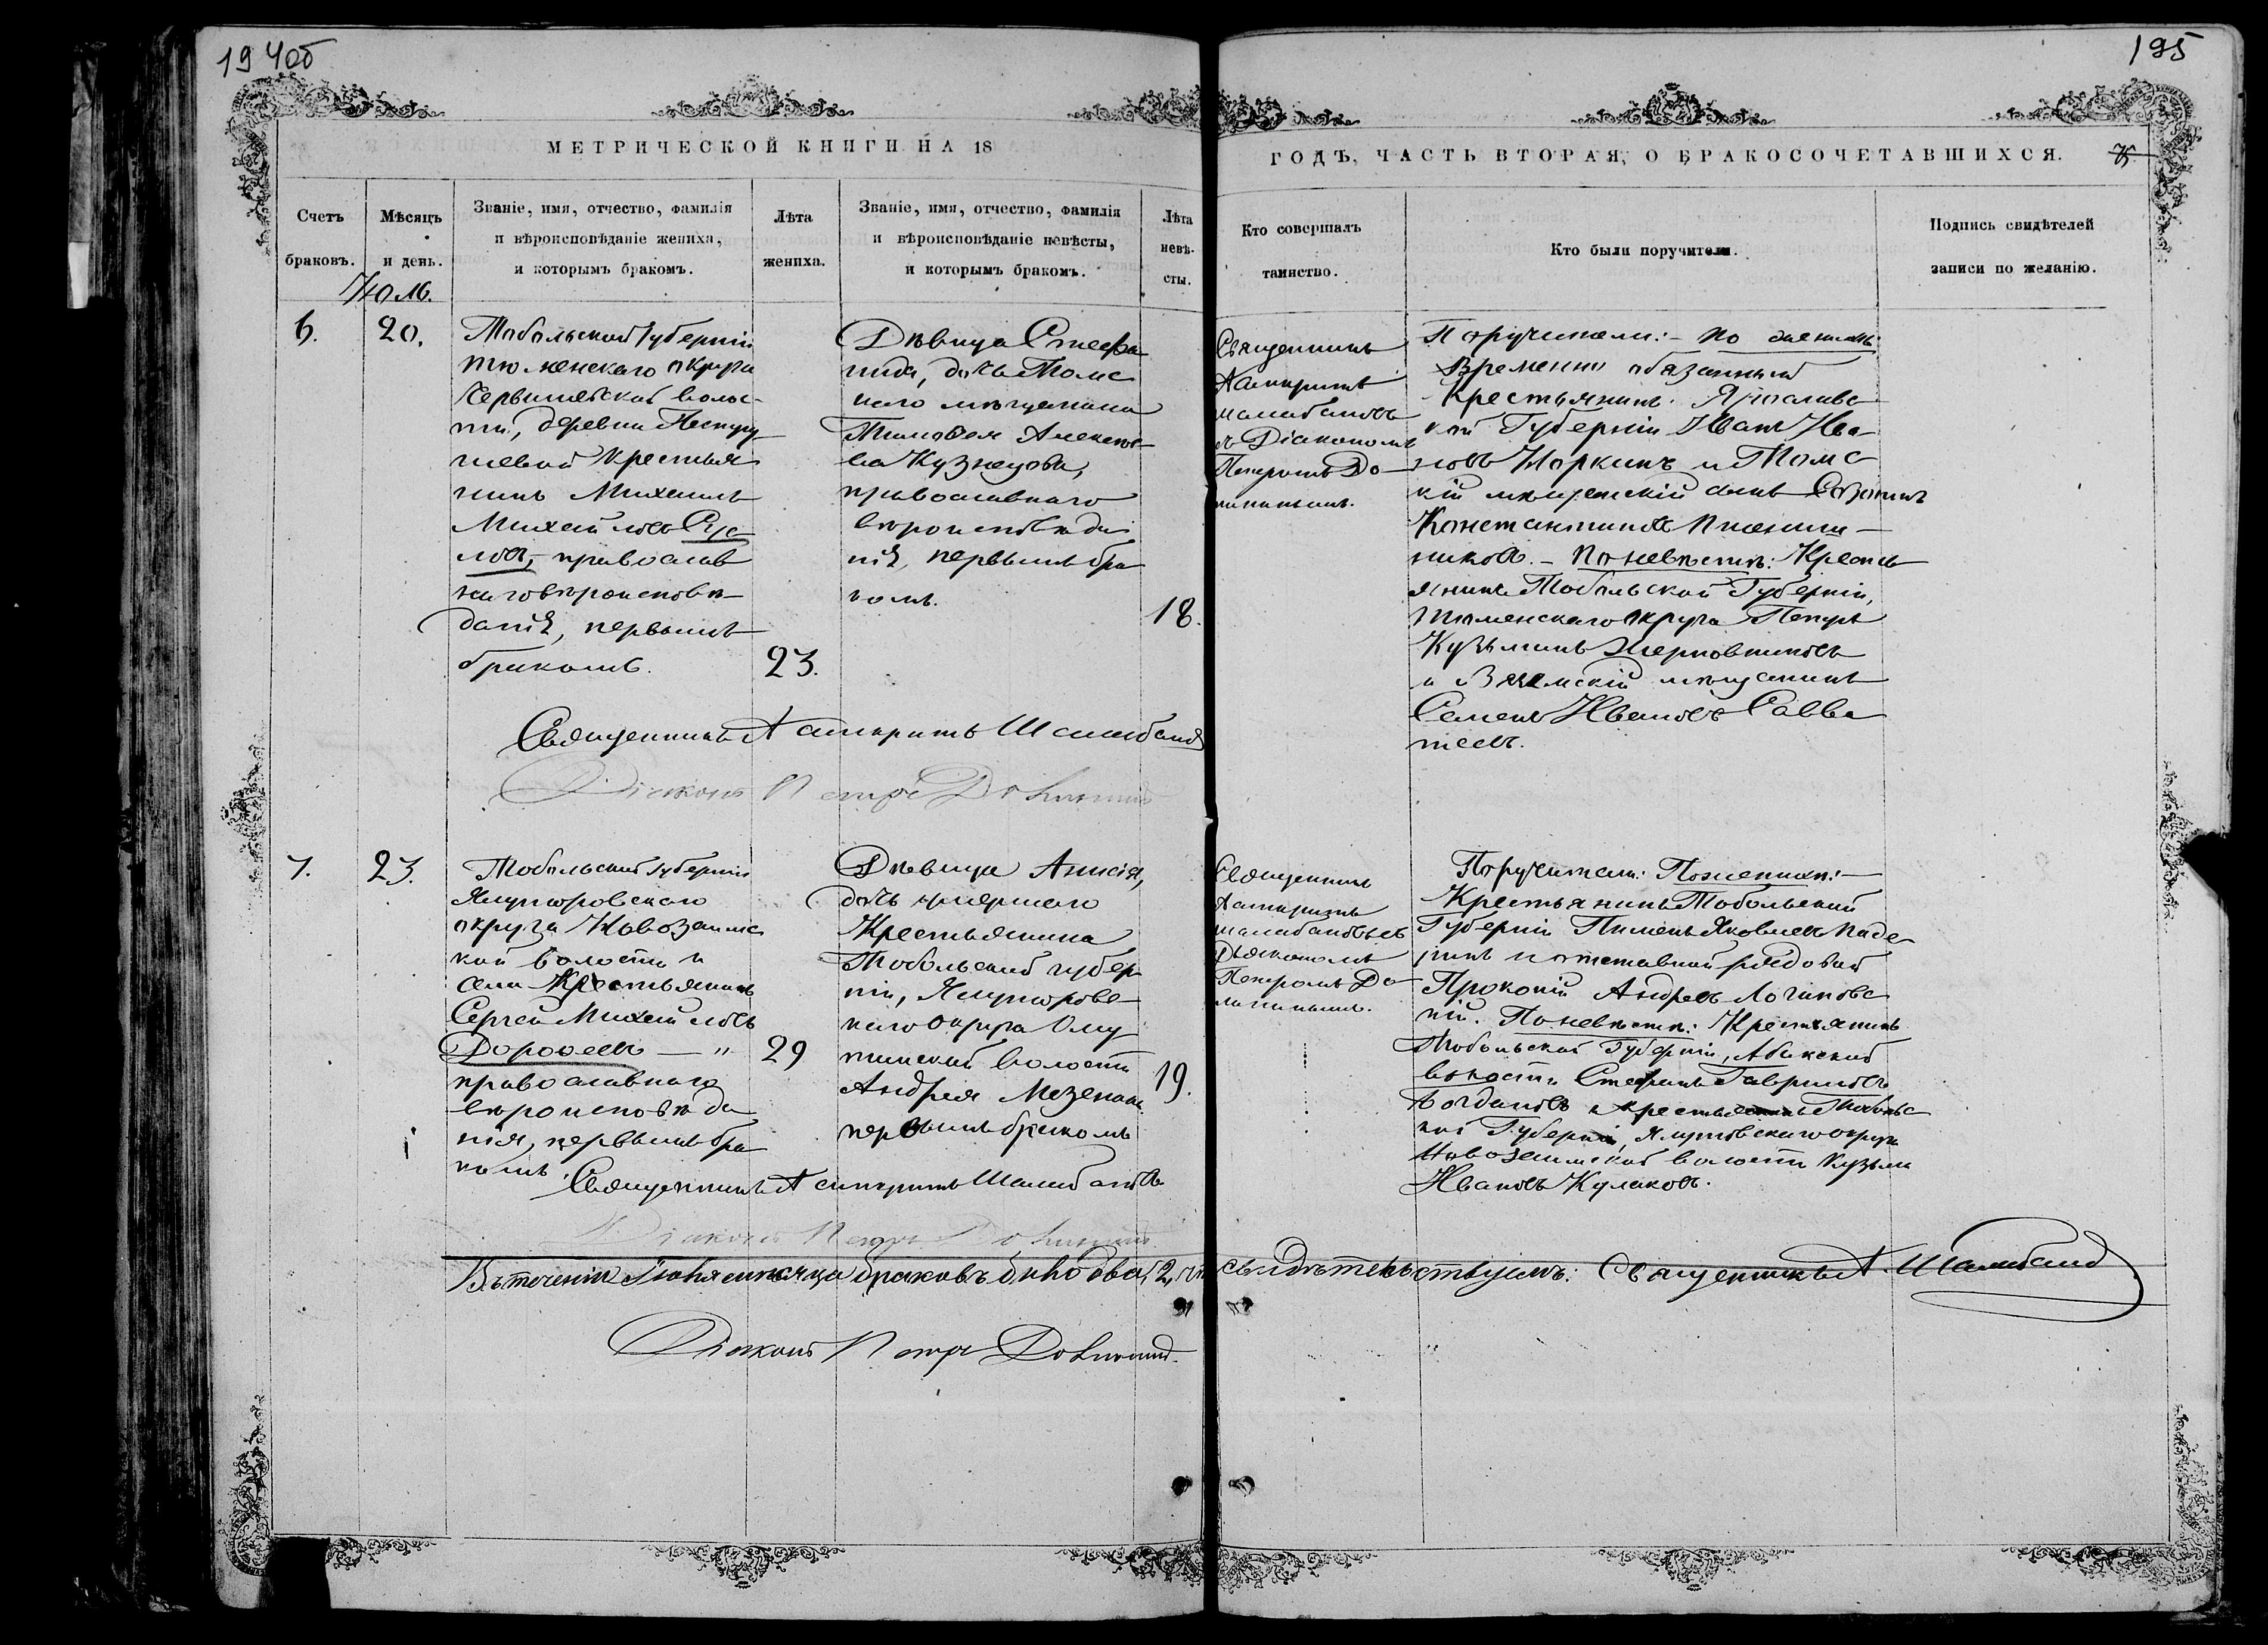 194об
195
МЕТРИЧЕСКОЙ КНИГИ НА 18
ГОДЪ, ЧАСТЬ ВТОРАЯ, О БРАКОСОЧЕТАВШИХСЯ.
Счетъ браковъ.
Мѣсяцъ и день.
Званіе, имя, отчество, фамилія
и вѣроисповѣданіе жениха,
и которымъ бракомъ.
Лѣта жениха.
Званіе, имя, отчество, фамилія
и вѣроисповѣданіе невѣсты,
и которымъ бракомъ.
Лѣта невѣ-
сты.
Кто совершалъ
таинство.
Кто были поручители.
Подпись свидѣтелей
записи по желанію.
6.
20.
Тобольской губерніи
Тюменскаго округа
Червишевской волос-
ти, деревни
крестья
нинъ Михаилъ
Михайловъ
православ
наго вѣроисповѣ-
данія, первымъ
бракомъ.
23.
Дѣвица Стефа
нида, дочь Томс
каго мѣщанина
Тимофея Алексѣе-
ва Кузнецова,
православнаго
вѣроисповѣда
нія, первымъ бра
комъ.
18.
Священникъ
Шалабановъ
съ Діакономъ
Петромъ До-
Поручители: - по женихѣ:
Временно обязанный
Крестьянинъ Ярославс
кой Губерніи Иванъ Ива
новъ Норкинъ и Томс
кій мѣщанскій сынъ
Константиновъ Пшенич-
никовъ. - По невѣстѣ: Кресть
янинъ Тобольской Губерніи,
Тюменскаго округа Петръ
Кузьминъ
и Вяземскій мѣщанинъ
Семенъ Ивановъ Савва
теевъ.
Священникъ Шалабановъ
Діаконъ Петръ
7.
23.
Тобольской губерніи
Ялуторовскаго
округа Новозаимс
кой волости и
села Крестьянинъ
Сергей Михайловъ
Дорофеевъ - "
православнаго
вѣроисповѣда
нія, первымъ бра
комъ.
29
Дѣвица Анисія,
дочь умершаго
Крестьянина
Тобольской губер
ніи, Ялуторовс-
каго округа Ому
тинской волости
Андрея Мезенова
первымъ бракомъ
19.
Священникъ
Шалабановъ съ
Дьякономъ
Петромъ До-
Поручители: По женихѣ: -
Крестьянинъ Тобольской
Губерніи Пименъ Яковлевъ Паде
ринъ и отставной рядовой
Прокопій Андреевъ Логиновс
кій. По невѣстѣ: Крестьянинъ
Тобольской Губерніи, Абакской
волости Стефанъ Гавриловъ
Богдановъ и крестьянинъ Тобольс
кой Губерніи, Ялуторовскаго округа
Новозаимской волости Кузьма
Ивановъ Кулаковъ.
Священникъ Шалабановъ
Діаконъ Петръ
Въ теченіи мѣсяца браковъ было два, 2, свидѣтельствуемъ: Священникъ А. Шалабановъ
Діаконъ Петръ